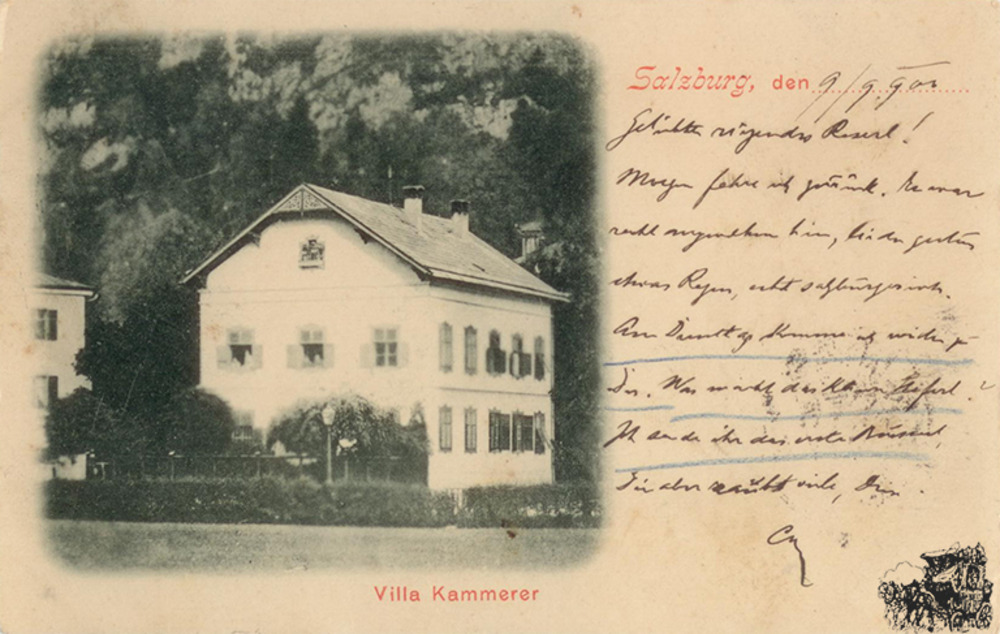 Salzburg, den 9/9. 900
Geliebtes Reserl!
Morgen fahre ich zurück. Es war
recht angenehm hier, leider gestern
etwas Regen, echt salzburgerisch.
Am Dienstag komme ich wieder zu
Dir. Was macht das kleine ?
Ich sende ihr das erste Busserl,
Dir aber viele, Dein
Villa Kammerer